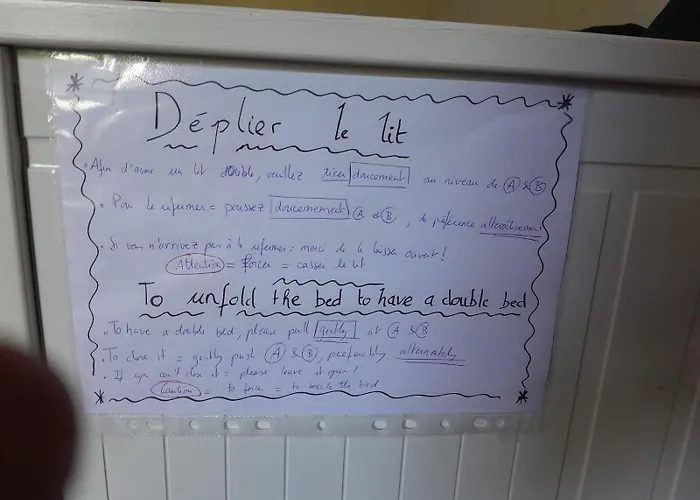 Déplier le lit
• Afin d'avoir un lit double, veuillez tirer doucement au niveau de A & B
• Pour le refermer = poussez doucement A et B, de préférence alternativement
• Si vous n'arrivez pas à le refermer = merci de le laisser ouvert!
Attention = forcer = casser le lit
To unfold the bed to have a double bed
• To have a double bed, please pull gently at A & B
• To close it = gently push A & B, preferably alternately
• If you can't close it = please leave it open!
Caution = to force = to the bed